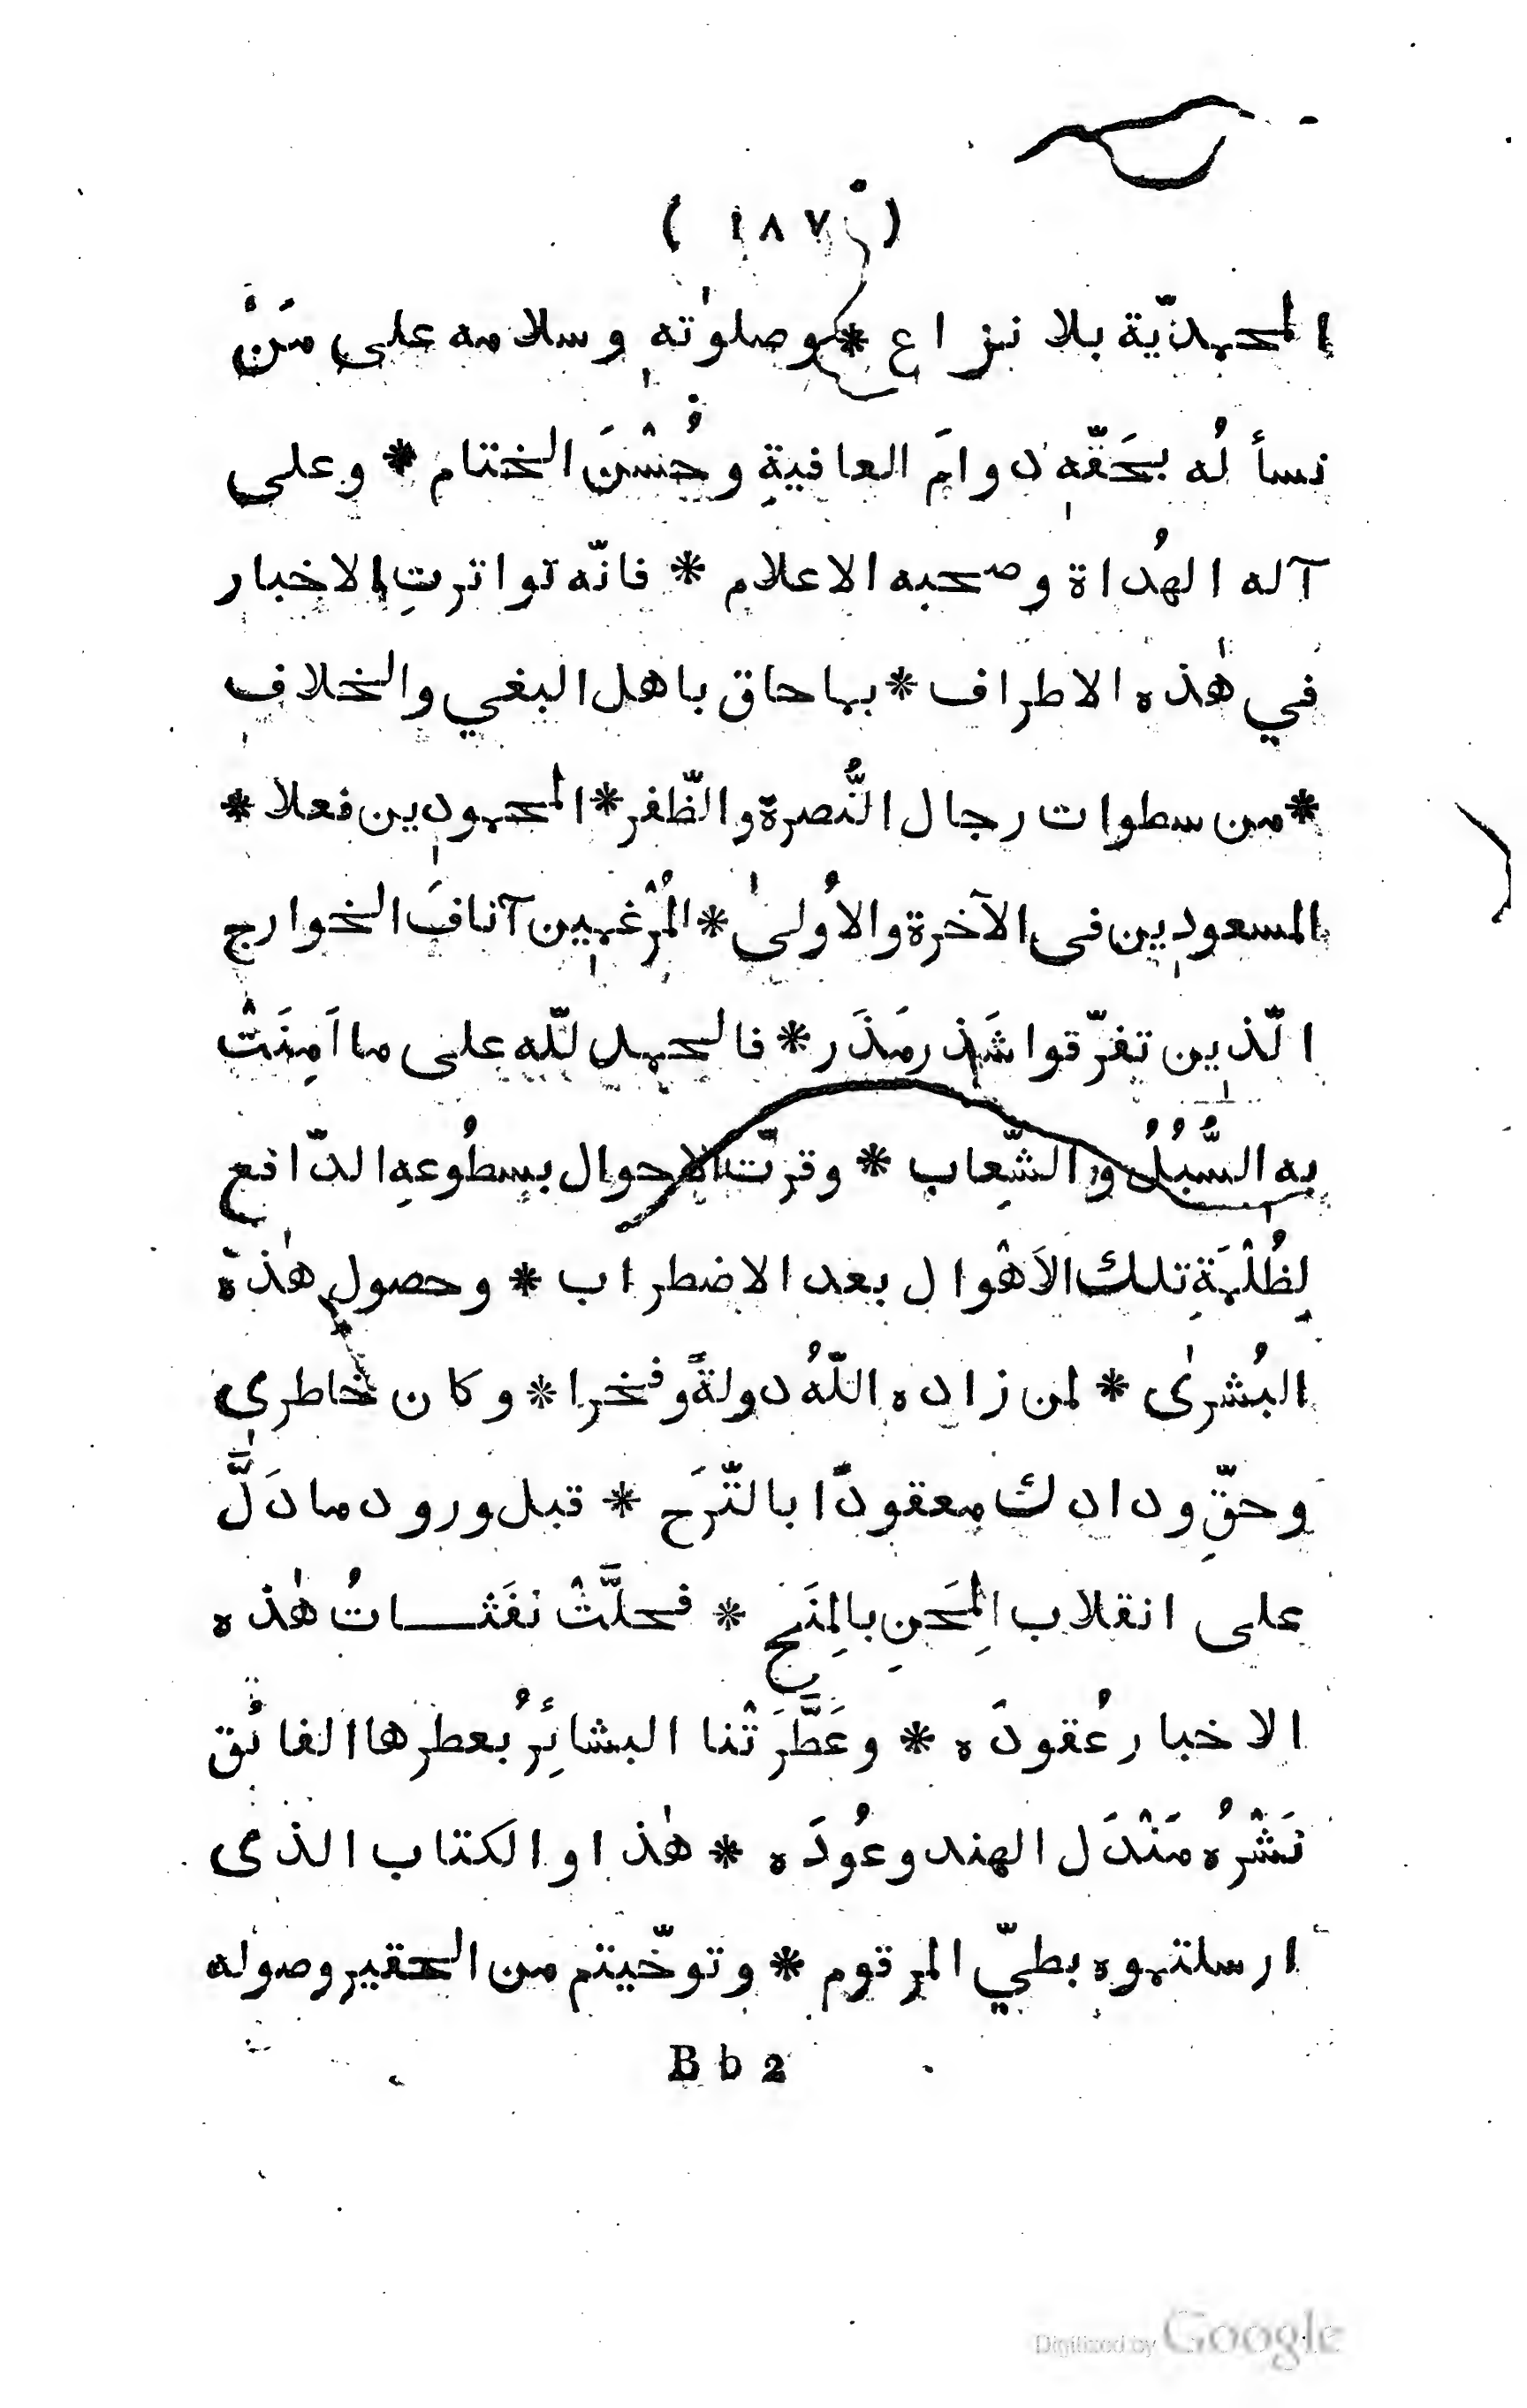 ( ١٨٧ )
المحمديّة بلا نزاع * وصلوٰته وسلامه على مَنْ
نسألُه بحَقّه دوامَ العافيةِ وحُسْنَ الختام * وعلى
آله الهُداة وصحبه الاعلام * فانّه تواترتِ الاخبار
في هٰذه الاطراف * بما حاق باهل البغي والخلاف
* من سطوات رجال النُّصرة والظّفر * المحمودين فعلا *
المسعودين فى الآخرة والأُولىٰ * المُرْغمين آنافَ الخوارج
الّذين تفرّقوا شَذر مَذَر * فالحمد لله على ما اَمِنَتْ
به السُّبُلُ والشِّعاب * وقرّت الاحوال بسطُوعهِ الدّافع
لِظُلْمَةِ تلك الاَهْوال بعد الاضطراب * وحصول هٰذه
البُشرىٰ * لمن زاده اللّهُ دولةً وفخرا * وكان خاطرى
وحقِّ ودادك معقودًا بالتّرَح * قبل ورود ما دَلَّ
على انقلاب المِحَنِ بالمِنَح * فحلَّتْ نفَثــاتُ هٰذه
الاخبار عُقودَه * وعَطَّرَتْنا البشائِرُ بعطرها الفائق
نَشْرُه مَنْدَل الهند وعُودَه * هٰذا والكتاب الذى
ارسلتموه بطيّ المرقوم * وتوخّيتم من الحقير وصوله
B b 2
Digitized by Google